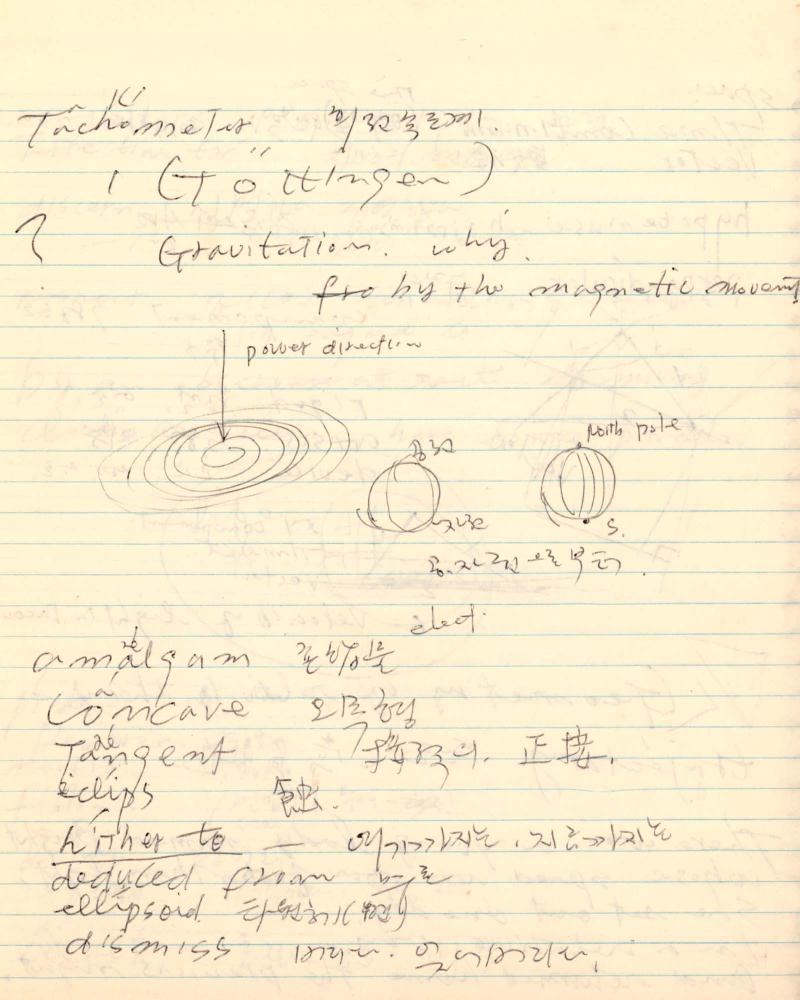 Tachometer 회전속도계.
1 (Göttingen)
? Gravitation. why.
by the magnetic movement
power direction
north pole
S.
으로부터.
elect.
amalgam 혼합물
Concave 오목형
Tangent 接線의. 正接.
eclips 蝕.
hither to — 여기까지는. 지금까지는
deduced from 부터
ellipsoid 타원
dismiss 버리다. 잊어버리다.